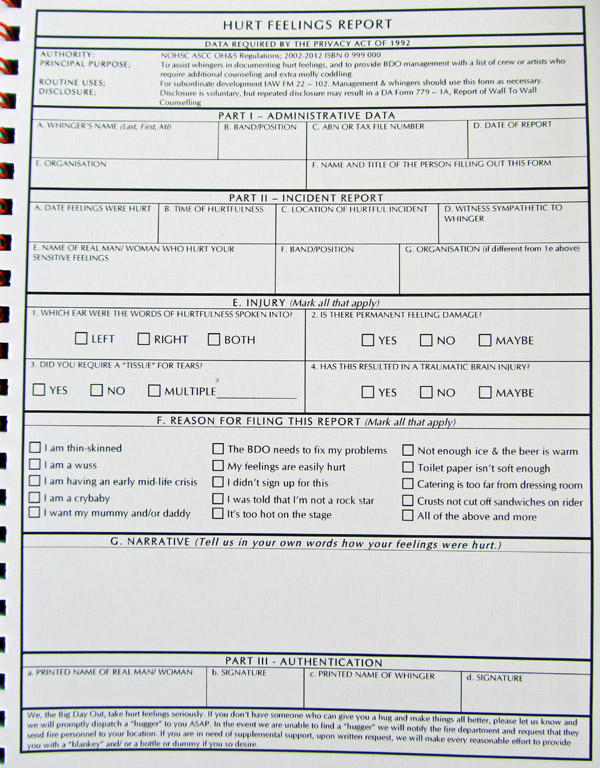 HURT FEELINGS REPORT
DATA REQUIRED BY THE PRIVACY ACT OF 1992
AUTHORITY: NOHSC ASCC OH&S Regulations; 2002-2012 ISBN 0 999 000
PRINCIPAL PURPOSE; To assist whingers in documenting hurt feelings, and to provide BDO management with a list of crew or artists who
require additional counseling and extra molly coddling.
ROUTINE USES; For subordinate development IAW FM 22 – 102. Management & whingers should use this form as necessary.
DISCLOSURE; Disclosure is voluntary, but repeated disclosure may result in a DA Form 779 – 1A, Report of Wall To Wall
Counselling
PART I – ADMINISTRATIVE DATA
A. WHINGER'S NAME (Last, First, MI) B. BAND/POSITION C. ABN OR TAX FILE NUMBER D. DATE OF REPORT
E. ORGANISATION F. NAME AND TITLE OF THE PERSON FILLING OUT THIS FORM
PART II – INCIDENT REPORT
A. DATE FEELINGS WERE HURT B. TIME OF HURTFULNESS C. LOCATION OF HURTFUL INCIDENT D. WITNESS SYMPATHETIC TO
WHINGER
E. NAME OF REAL MAN/ WOMAN WHO HURT YOUR F. BAND/POSITION G. ORGANISATION (if different from 1e above)
SENSITIVE FEELINGS
E. INJURY (Mark all that apply)
1. WHICH EAR WERE THE WORDS OF HURTFULNESS SPOKEN INTO? 2. IS THERE PERMANENT FEELING DAMAGE?
LEFT RIGHT BOTH YES NO MAYBE
3. DID YOU REQUIRE A "TISSUE" FOR TEARS? 4. HAS THIS RESULTED IN A TRAUMATIC BRAIN INJURY?
YES NO MULTIPLE YES NO MAYBE
F. REASON FOR FILING THIS REPORT (Mark all that apply)
I am thin-skinned The BDO needs to fix my problems Not enough ice & the beer is warm
I am a wuss My feelings are easily hurt Toilet paper isn't soft enough
I am having an early mid-life crisis I didn't sign up for this Catering is too far from dressing room
I am a crybaby I was told that I'm not a rock star Crusts not cut off sandwiches on rider
I want my mummy and/or daddy It's too hot on the stage All of the above and more
G. NARRATIVE (Tell us in your own words how your feelings were hurt.)
PART III - AUTHENTICATION
a. PRINTED NAME OF REAL MAN/ WOMAN b. SIGNATURE c. PRINTED NAME OF WHINGER d. SIGNATURE
We, the Big Day Out, take hurt feelings seriously. If you don't have someone who can give you a hug and make things all better, please let us know and
we will promptly dispatch a "hugger" to you ASAP. In the event we are unable to find a "hugger" we will notify the fire department and request that they
send fire personnel to your location. If you are in need of supplemental support, upon written request, we will make every reasonable effort to provide
you with a "blankey" and/ or a bottle or dummy if you so desire.